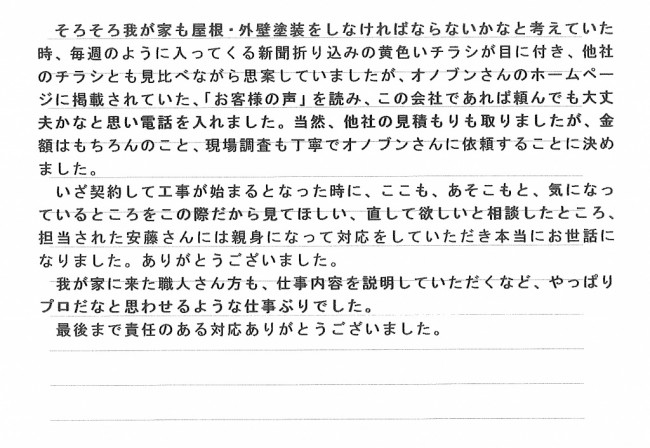 そろそろ我が家も屋根・外壁塗装をしなければならないかなと考えていた
時、毎週のように入ってくる新聞折り込みの黄色いチラシが目に付き、他社
のチラシとも見比べながら思案していましたが、オノブンさんのホームペー
ジに掲載されていた、「お客様の声」を読み、この会社であれば頼んでも大丈
夫かなと思い電話を入れました。当然、他社の見積もりも取りましたが、金
額はもちろんのこと、現場調査も丁寧でオノブンさんに依頼することに決め
ました。
　いざ契約して工事が始まるとなった時に、ここも、あそこもと、気になっ
ているところをこの際だから見てほしい、直して欲しいと相談したところ、
担当された安藤さんには親身になって対応をしていただき本当にお世話に
なりました。ありがとうございました。
　我が家に来た職人さん方も、仕事内容を説明していただくなど、やっぱり
プロだなと思わせるような仕事ぶりでした。
　最後まで責任のある対応ありがとうございました。